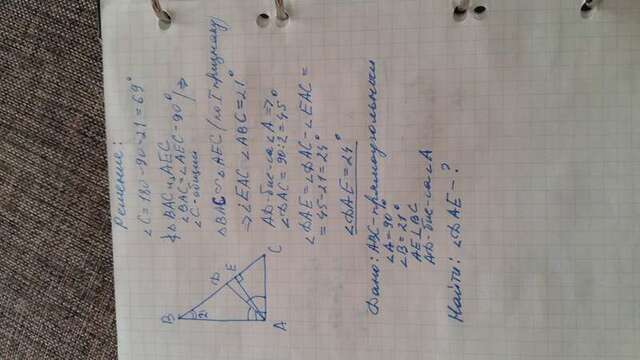 Решение:
∠C=180-90-21=69°
△BAC и △AEC
∠BAC=∠AEC=90° ⇒
∠C-общий
△BAC ~ △AEC (по I признаку)
⇒ ∠EAC=∠ABC=21°
AD-бис-са ∠A ⇒
∠DAC=90:2=45°
∠DAE=∠DAC-∠EAC=
=45-21=24°
∠DAE=24°
B
21
D
E
C
A
Дано: ABC-прямоугольный
∠A=90°
∠B=21°
AE⊥BC
AD-бис-са ∠A
Найти: ∠DAE-?